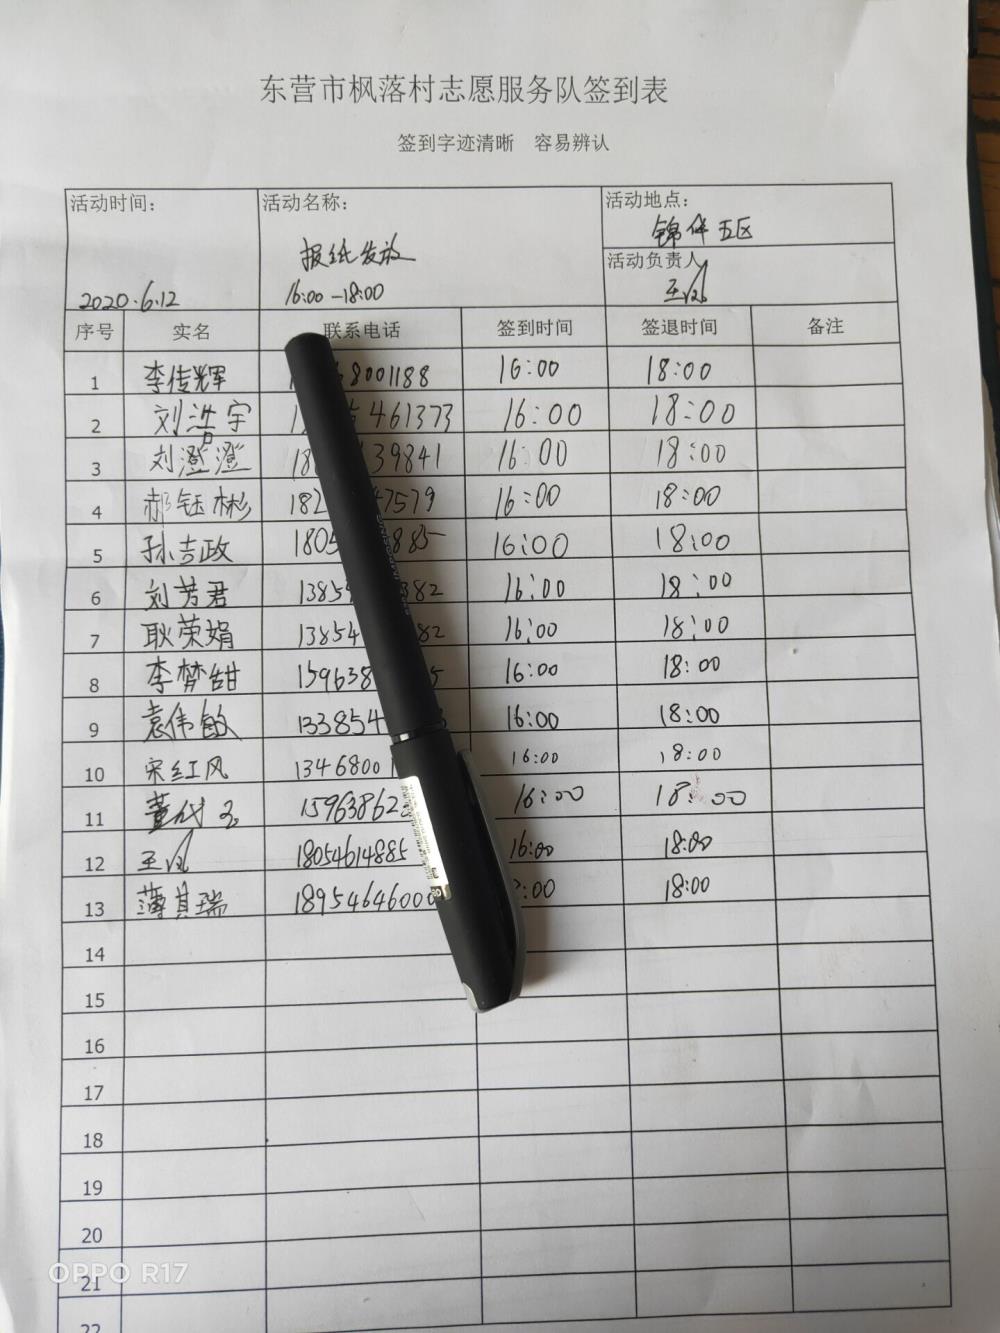 东营市枫落村志愿服务队签到表
签到字迹清晰 容易辨认
活动时间： 活动名称： 活动地点：
锦华五区
报纸发放
活动负责人
2020.6.12 16:00-18:00 王凤
序号 实名 联系电话 签到时间 签退时间 备注
1 李传辉 8001188 16:00 18:00
2 刘浩宇 461373 16:00 18:00
3 刘澄澄 39841 16:00 18:00
4 郝钰彬 182 7579 16:00 18:00
5 孙吉政 1805 885 16:00 18:00
6 刘芳君 1385 382 16:00 18:00
7 耿荣娟 13854 82 16:00 18:00
8 李梦甜 159638 5 16:00 18:00
9 袁伟敏 133854 16:00 18:00
10 宋红风 13468001 16:00 18:00
11 董 15963862 16:00 18:00
12 王凤 18054614885 16:00 18:00
13 薄其瑞 1895464600 :00 18:00
14
15
16
17
18
19
20
21
22
OPPO R17